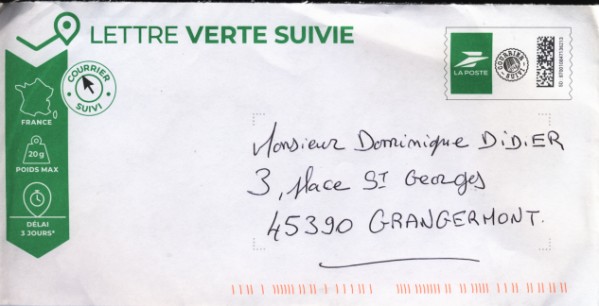 LETTRE VERTE SUIVIE
LA POSTE
COURRIER
SUIVI
COURRIER
SUIVI
FRANCE
20g
POIDS MAX
DÉLAI
3 JOURS*
Monsieur Dominique DIDIER
3, place St Georges
45390 GRANGERMONT.